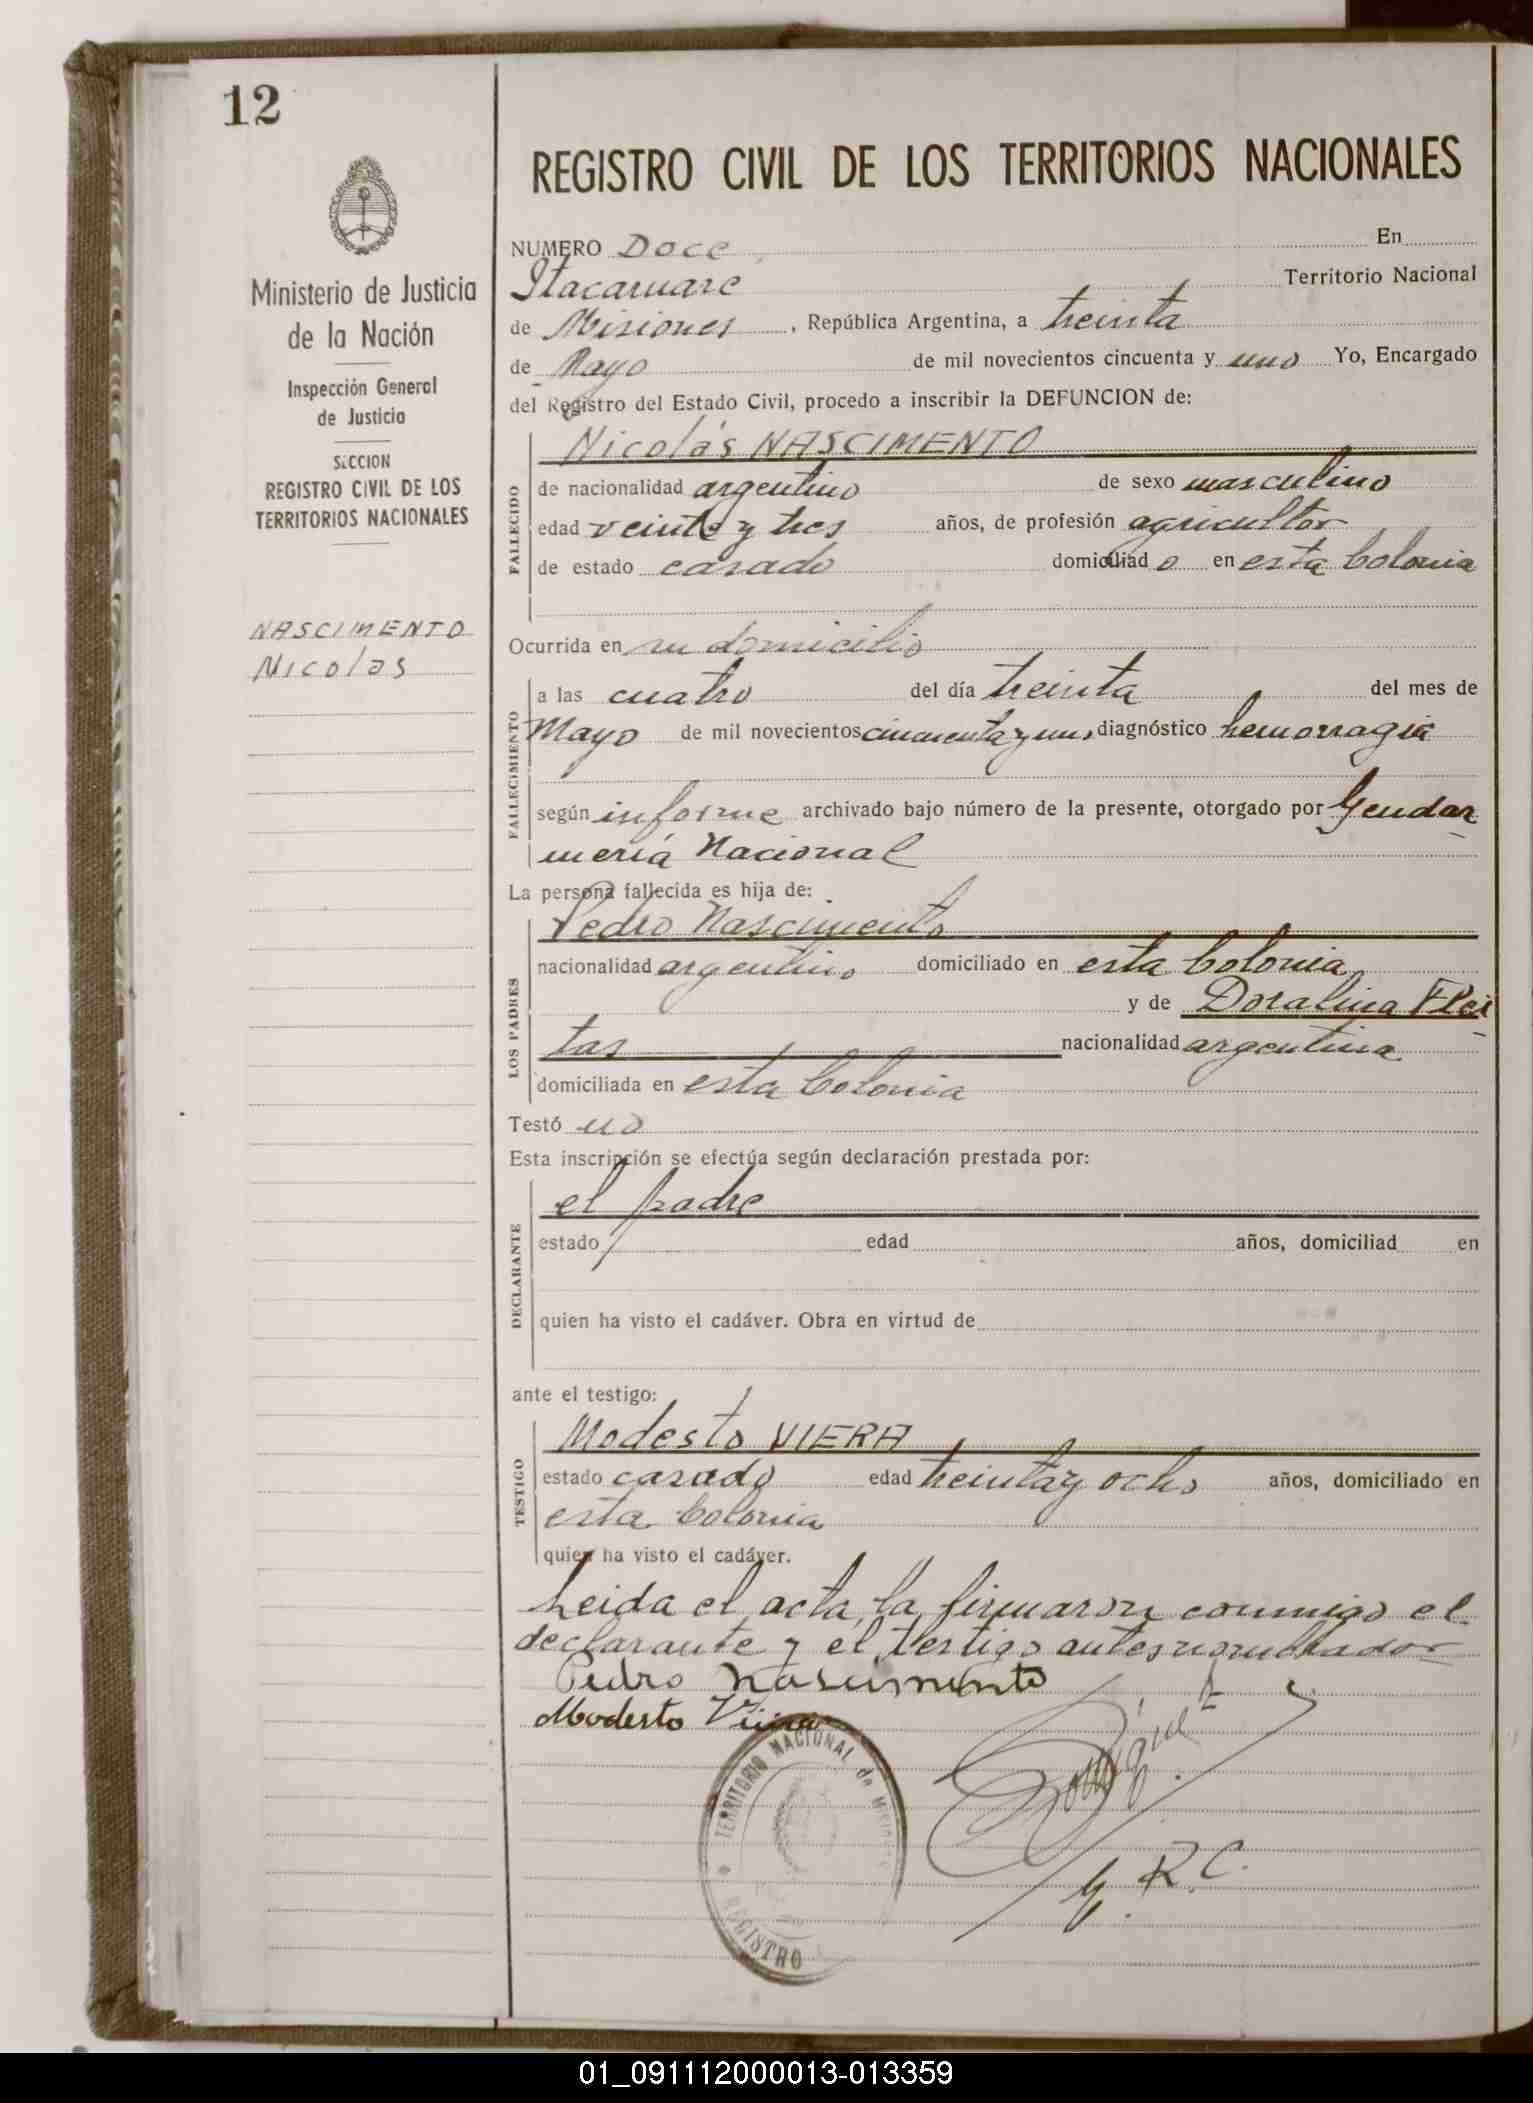 12
Ministerio de Justicia
de la Nación
Inspección General
de Justicia
SECCION
REGISTRO CIVIL DE LOS
TERRITORIOS NACIONALES
NASCIMENTO
Nicolas
REGISTRO CIVIL DE LOS TERRITORIOS NACIONALES
NUMERO Doce En
Itacaruare Territorio Nacional
de Misiones, República Argentina, a treinta
de Mayo de mil novecientos cincuenta y uno Yo, Encargado
del Registro del Estado Civil, procedo a inscribir la DEFUNCION de:
Nicolás NASCIMENTO
FALLECIDO
de nacionalidad argentino de sexo masculino
edad veinte y tres años, de profesión agricultor
de estado casado domiciliado en esta Colonia
Ocurrida en su domicilio
FALLECIMIENTO
a las cuatro del día treinta del mes de
Mayo de mil novecientos cincuenta y uno, diagnóstico hemorragia
según informe archivado bajo número de la presente, otorgado por Gendar
mería Nacional
La persona fallecida es hija de:
LOS PADRES
Pedro Nascimento
nacionalidad argentino domiciliado en esta Colonia
y de Doralina Flei
tas nacionalidad argentina
domiciliada en esta Colonia
Testó no
Esta inscripción se efectúa según declaración prestada por:
DECLARANTE
el padre
estado edad años, domiciliad en
quien ha visto el cadáver. Obra en virtud de
ante el testigo:
TESTIGO
Modesto VIERA
estado casado edad treinta y ocho años, domiciliado en
esta Colonia
quien ha visto el cadáver.
Leida el acta, la firmaron conmigo el
declarante y el testigo antes nombrados
Pedro Nascimento
Modesto Viera
TERRITORIO NACIONAL de Misiones
REGISTRO
E. R. C.
01_091112000013-013359